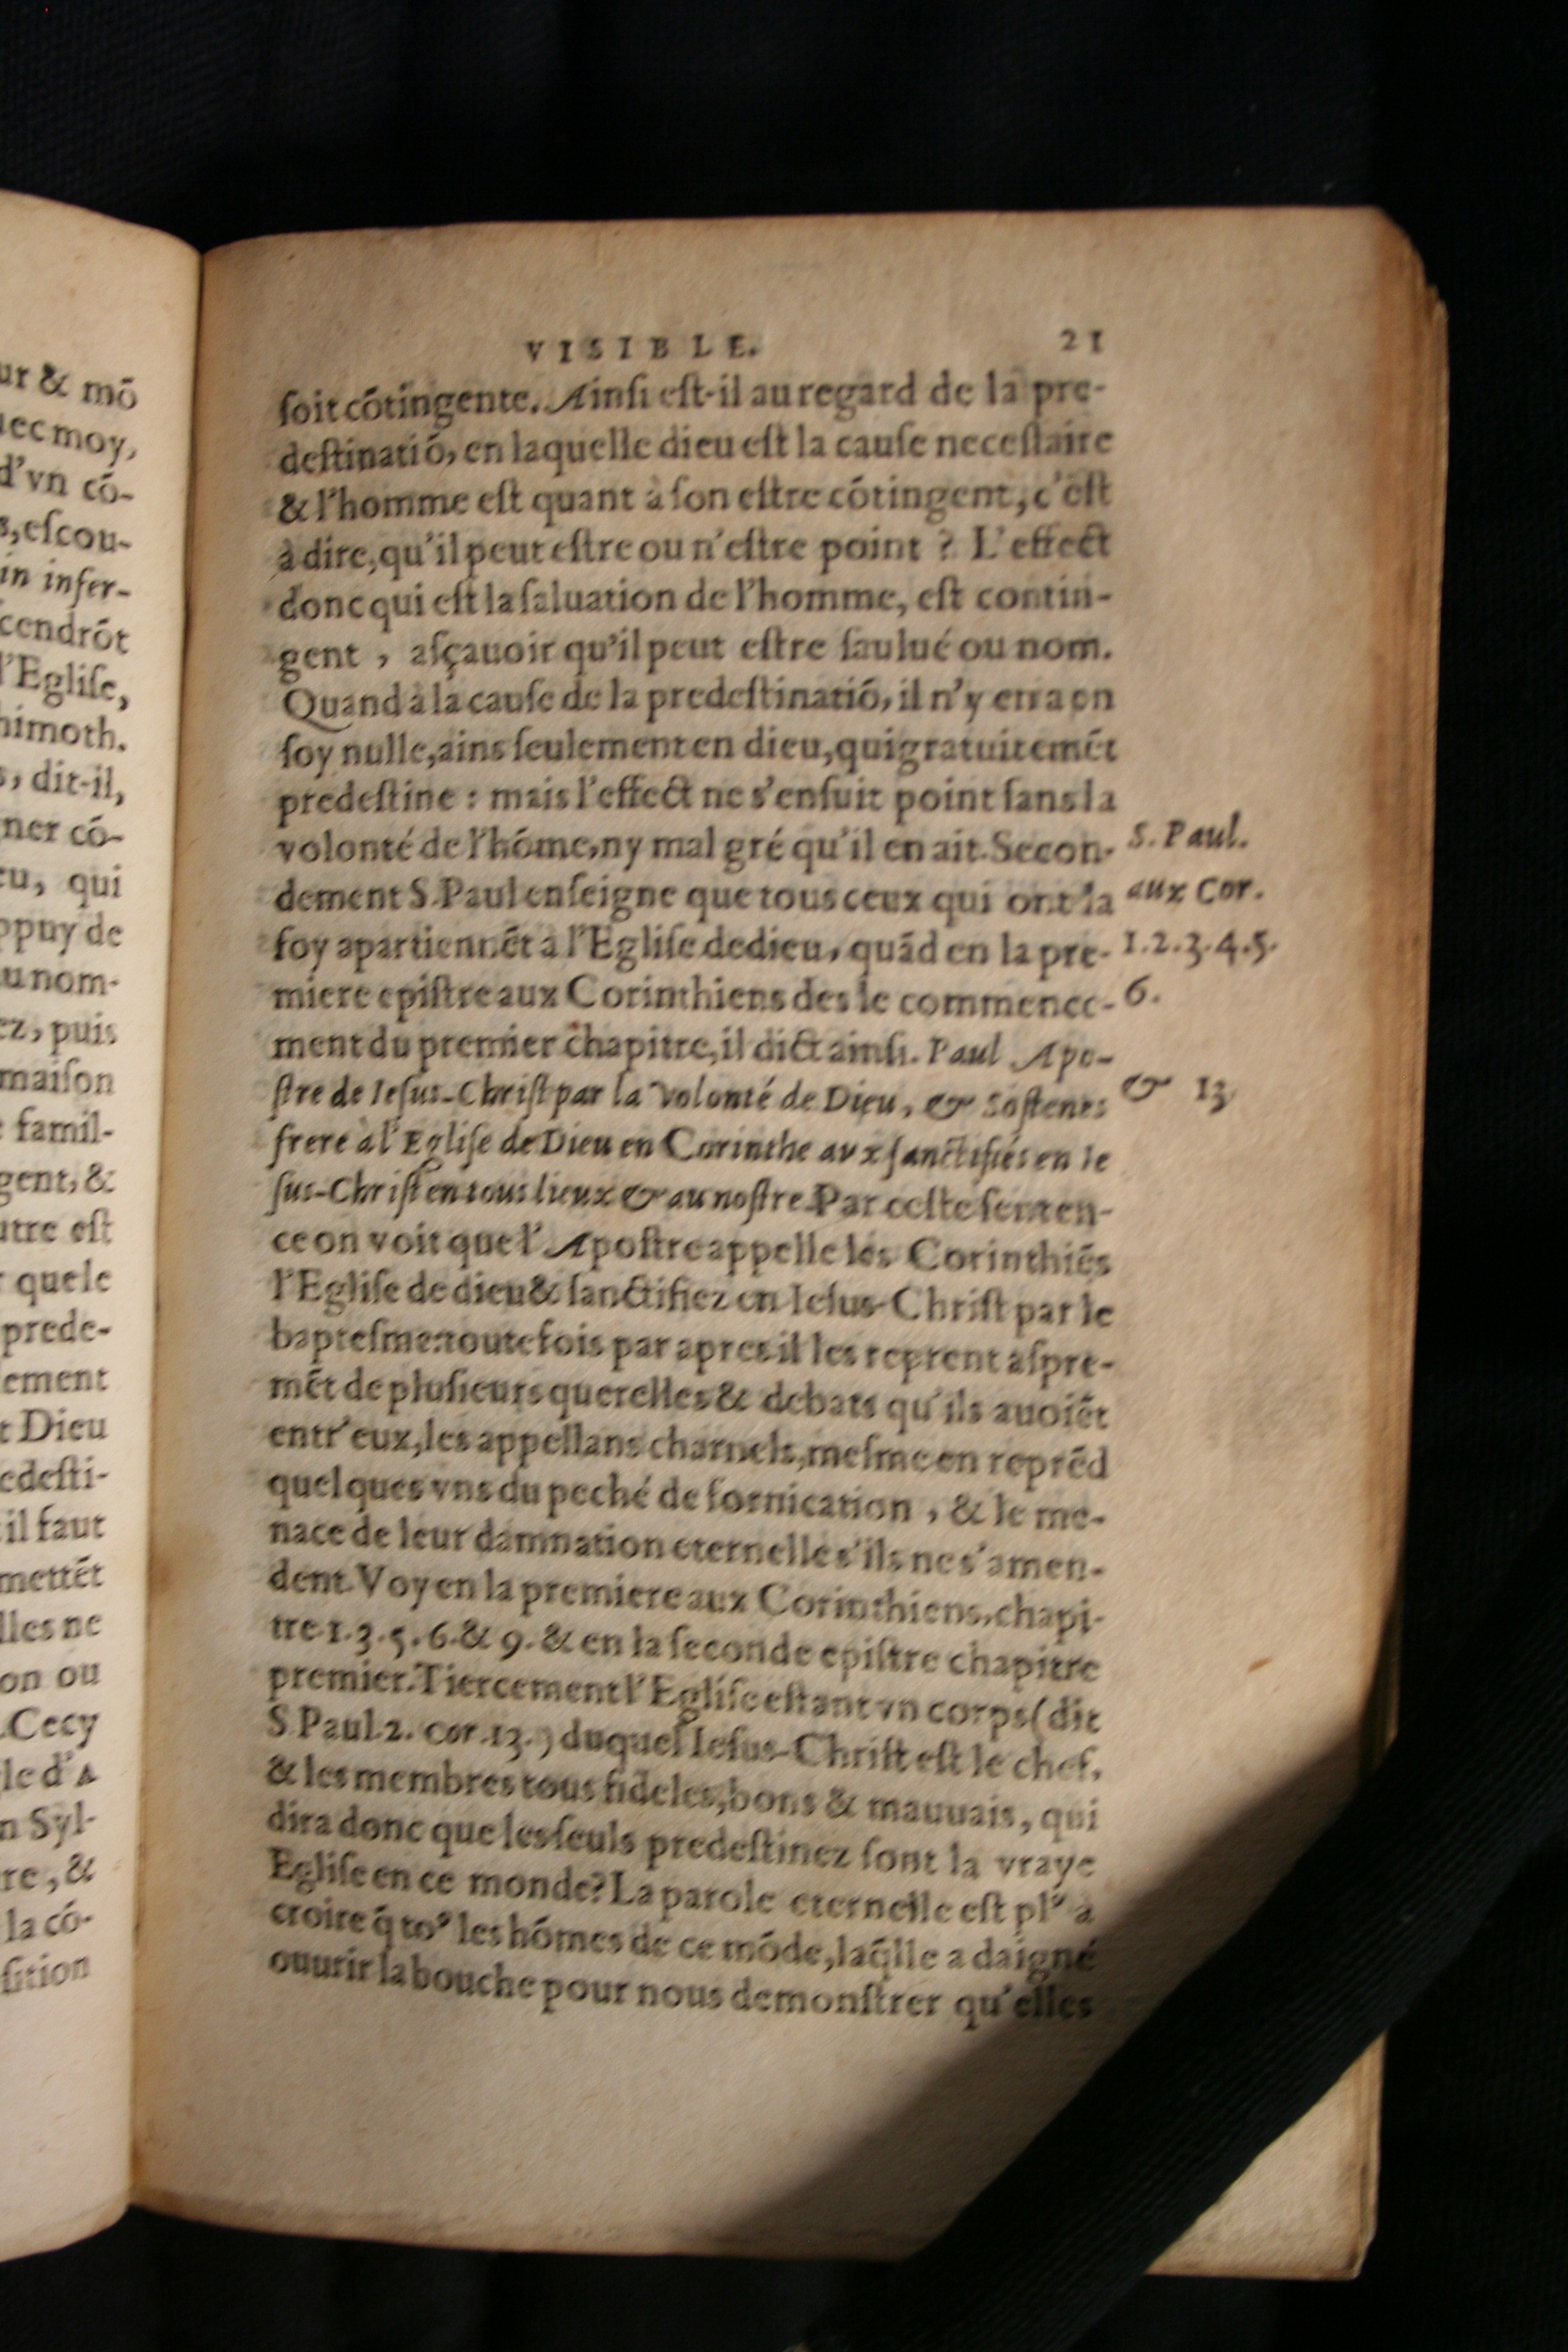 ur & mõ
uec moy,
d'vn cõ-
s, eſcou-
in infer-
cendrõt
l'Egliſe,
himoth.
s, dit-il,
ner cõ-
eu, qui
ppuy de
au nom-
ez, puis
maiſon
famil-
gent, &
utre eſt
quele
prede-
lement
t Dieu
edeſti-
il faut
mettẽt
lles ne
on ou
.Cecy
le d'A
n Syl-
re, &
la cõ-
ſition
VISIBLE. 21
ſoit cõtingente. Ainſi eſt-il au regard de la pre-
deſtinatiõ, en laquelle dieu eſt la cauſe neceſſaire
& l'homme eſt quant à ſon eſtre cõtingent, c'eſt
à dire, qu'il peut eſtre ou n'eſtre point ? L'effect
donc qui eſt la ſaluation de l'homme, eſt contin-
gent , aſçauoir qu'il peut eſtre ſaulué ou nom.
Quand à la cauſe de la predeſtinatiõ, il n'y en a en
ſoy nulle, ains ſeulement en dieu, qui gratuitemẽt
predeſtine : mais l'effect ne s'enſuit point ſans la
volonté de l'hõme, ny mal gré qu'il en ait. Secon-
dement S. Paul enſeigne que tous ceux qui ont la
foy apartiennẽt à l'Egliſe de dieu, quãd en la pre-
miere epiſtre aux Corinthiens des le commence-
ment du premier chapitre, il dict ainſi. Paul Apo-
ſtre de Ieſus-Chriſt par la volonté de Dieu, & Soſtenes
frere à l'Egliſe de Dieu en Corinthe avx ſanctifiés en Ie
ſus-Chriſt en tous lieux & au noſtre. Par ceſte ſenten-
ce on voit que l'Apoſtre appelle les Corinthiẽs
l'Egliſe de dieu & ſanctifiez en Ieſus-Chriſt par le
bapteſme: toutefois par apres il les reprent aſpre-
mẽt de pluſieurs querelles & debats qu'ils auoiẽt
entr'eux, les appellans charnels, meſme en reprẽd
quelques vns du peché de fornication , & le me-
nace de leur damnation eternelle s'ils ne s'amen-
dent. Voy en la premiere aux Corinthiens, chapi-
tre 1. 3. 5. 6. & 9. & en la ſeconde epiſtre chapitre
premier. Tiercement l'Egliſe eſtant vn corps (dit
S. Paul 2. Cor. 13.) duquel Ieſus-Chriſt eſt le chef,
& les membres tous fideles, bons & mauuais, qui
dira donc que les ſeuls predeſtinez ſont la vraye
Egliſe en ce monde? La parole eternelle eſt pl⁹ a
croire q̃ to⁹ les hõmes de ce mõde, laq̃lle a daigné
ouurir la bouche pour nous demonſtrer qu'elles
S. Paul.
aux Cor.
1.2.3.4.5.
6.
& 13